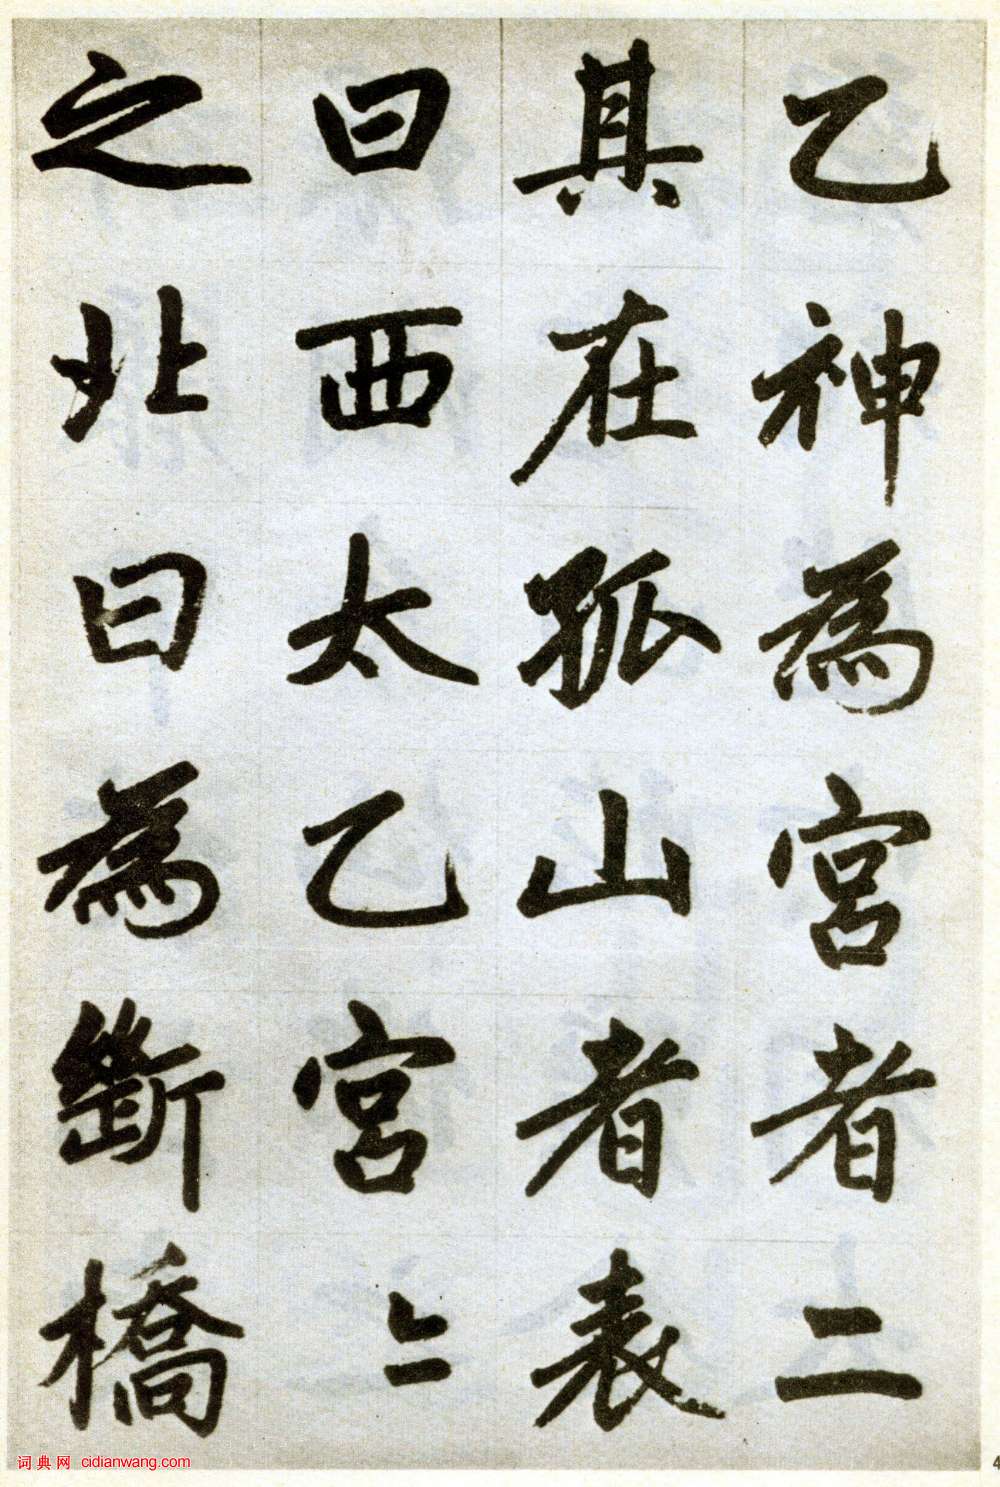 乙神為宮者二
其在孤山者表
曰西太乙宮〻
之北曰為斷橋
词典网 cidianwang.com
4